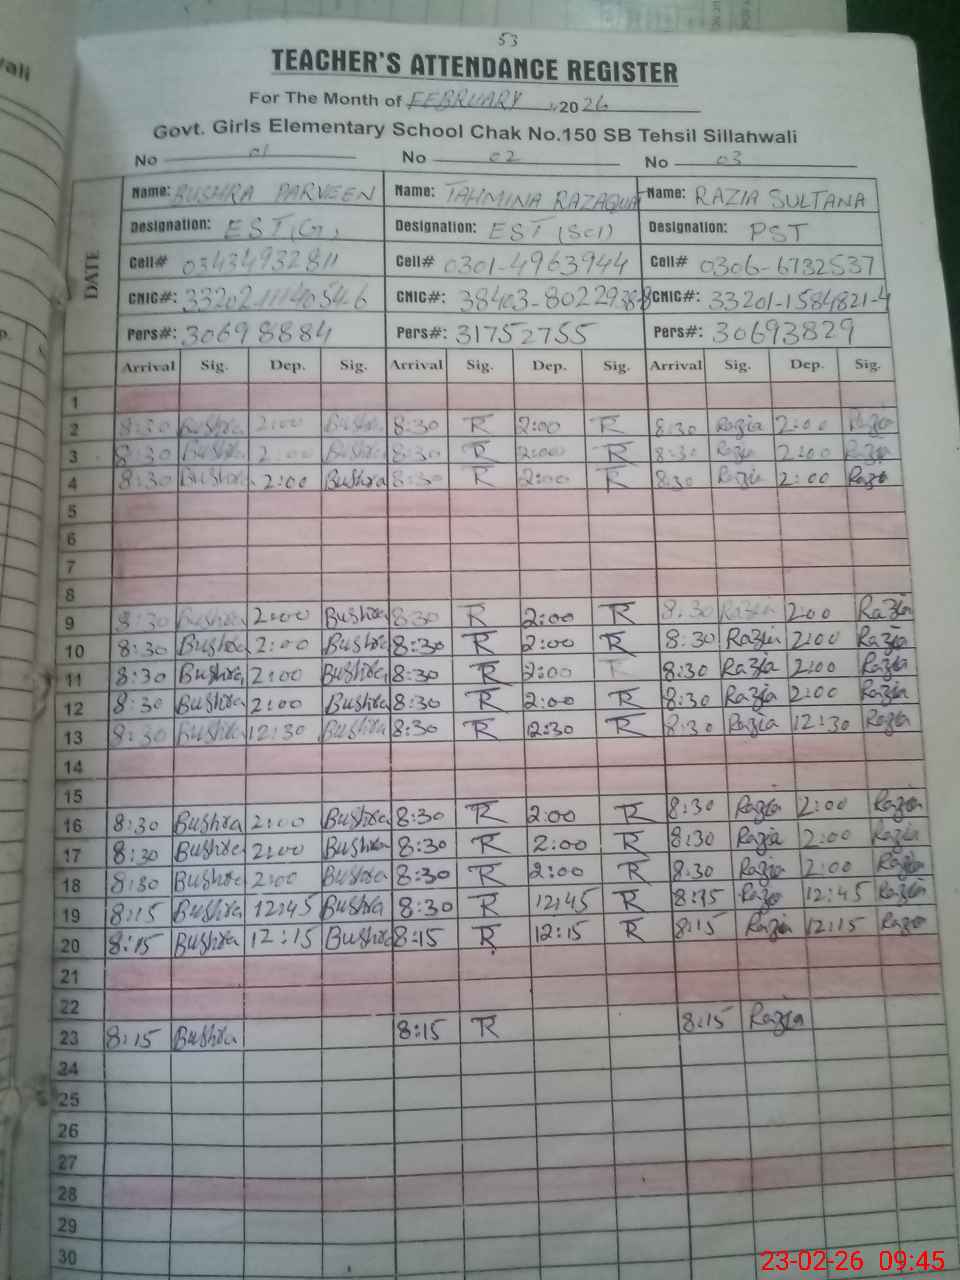 53
TEACHER'S ATTENDANCE REGISTER
For The Month of FEBRUARY, 2026
Govt. Girls Elementary School Chak No.150 SB Tehsil Sillahwali
No 01 No 02 No 03
DATE
Name: BUSHRA PARVEEN Name: TAHMINA RAZAQUA Name: RAZIA SULTANA
Designation: EST(G) Designation: EST (SCI) Designation: PST
Cell# 03434932811 Cell# 0301-4963944 Cell# 0306-6732537
CNIC#: CNIC#: CNIC#: 33201-1584821-4
Pers#: 30698884 Pers#: 31752755 Pers#: 30693829
Arrival Sig. Dep. Sig. Arrival Sig. Dep. Sig. Arrival Sig. Dep. Sig.
1
2 8:30 Bushra 2:00 Bushra 8:30 R 2:00 R 8:30 Razia 2:00 Razia
3 8:30 Bushra 2:00 Bushra 8:30 R 2:00 R 8:30 Razia 2:00 Razia
4 8:30 Bushra 2:00 Bushra 8:30 R 2:00 R 8:30 Razia 2:00 Razia
5
6
7
8
9 8:30 Bushra 2:00 Bushra 8:30 R 2:00 R 8:30 Razia 2:00 Razia
10 8:30 Bushra 2:00 Bushra 8:30 R 2:00 R 8:30 Razia 2:00 Razia
11 8:30 Bushra 2:00 Bushra 8:30 R 2:00 R 8:30 Razia 2:00 Razia
12 8:30 Bushra 2:00 Bushra 8:30 R 2:00 R 8:30 Razia 2:00 Razia
13 8:30 Bushra 12:30 Bushra 8:30 R 12:30 R 8:30 Razia 12:30 Razia
14
15
16 8:30 Bushra 2:00 Bushra 8:30 R 2:00 R 8:30 Razia 2:00 Razia
17 8:30 Bushra 2:00 Bushra 8:30 R 2:00 R 8:30 Razia 2:00 Razia
18 8:30 Bushra 2:00 Bushra 8:30 R 2:00 R 8:30 Razia 2:00 Razia
19 8:15 Bushra 12:45 Bushra 8:30 R 12:45 R 8:15 Razia 12:45 Razia
20 8:15 Bushra 12:15 Bushra 8:15 R 12:15 R 8:15 Razia 12:15 Razia
21
22
23 8:15 Bushra 8:15 R 8:15 Razia
24
25
26
27
28
29
30
23-02-26 09:45